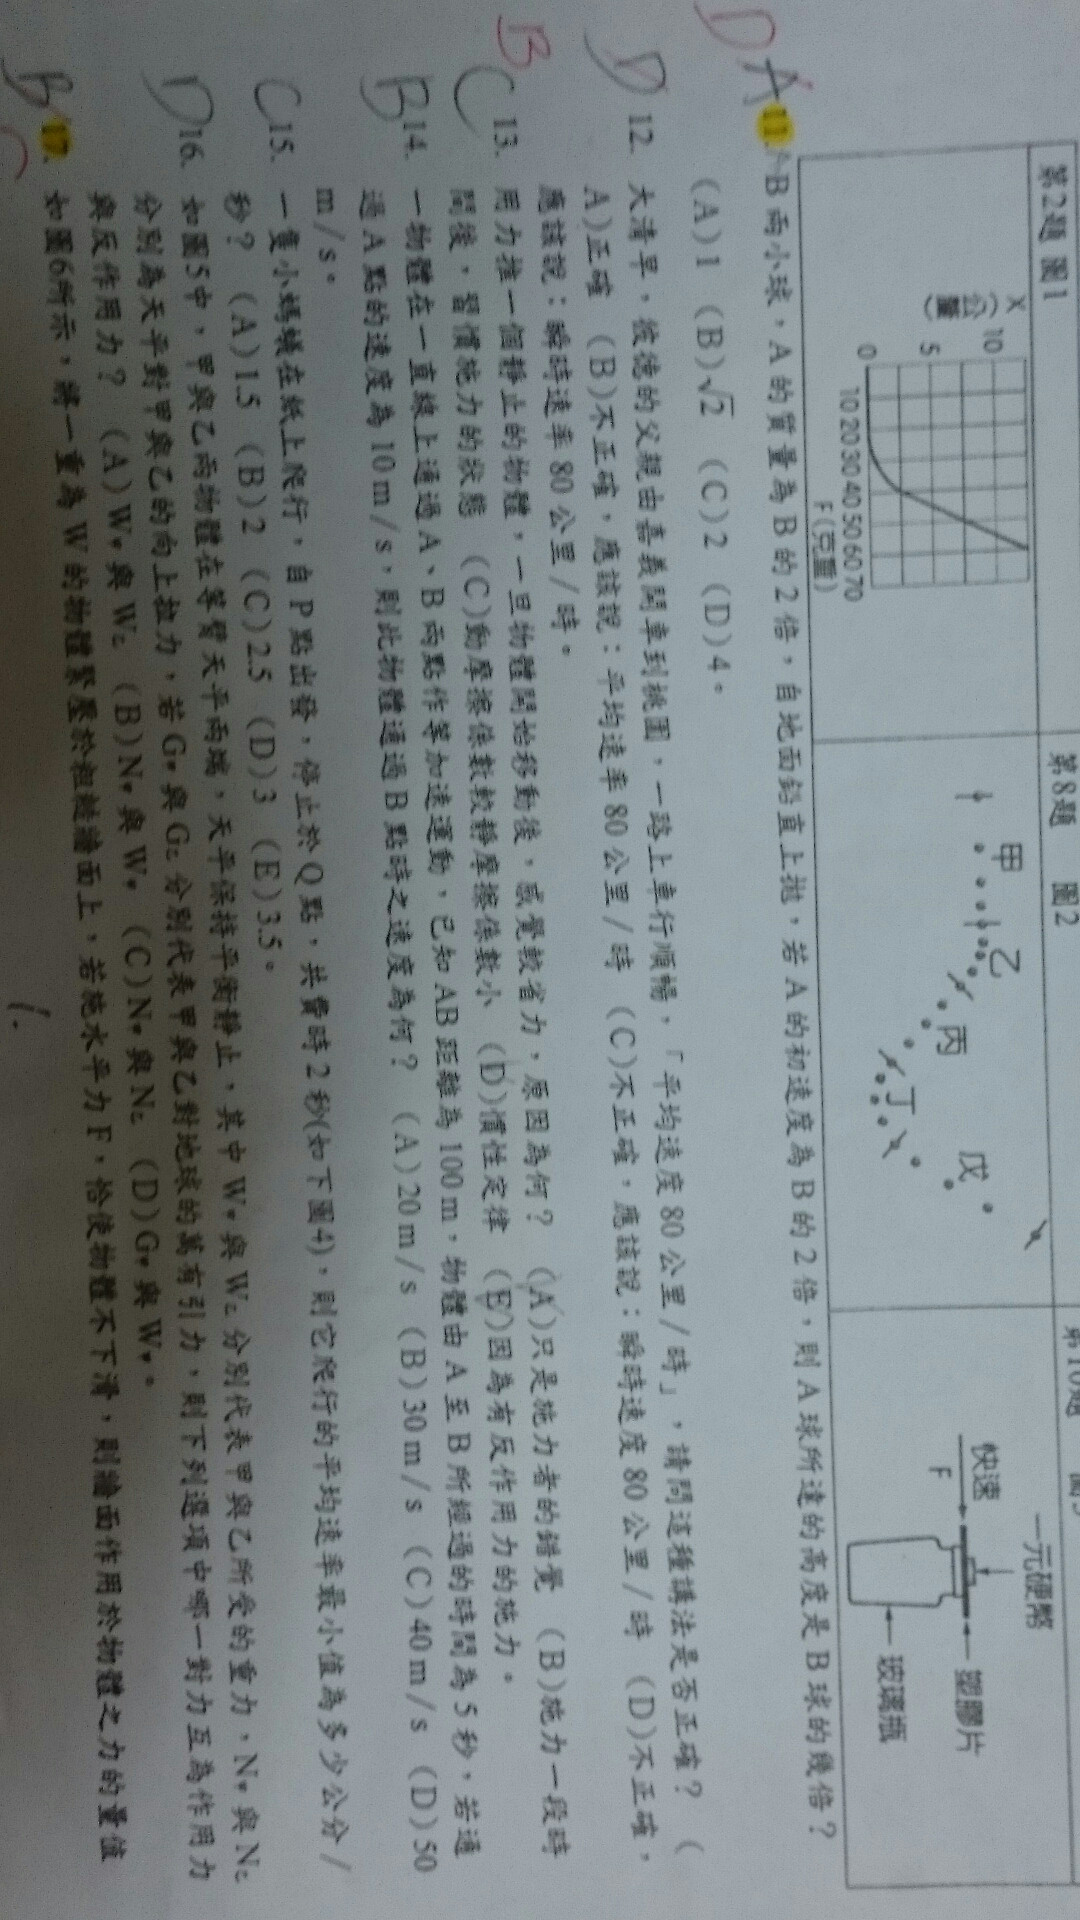 第2題 圖1
第8題 圖2
第10題 圖3
X
(公分)
10
5
0
10 20 30 40 50 60 70
F(克重)
甲
乙
丙
丁
戊
快速
F
一元硬幣
塑膠片
玻璃瓶
D A 11. AB兩小球，A的質量為B的2倍，自地面鉛直上拋，若A的初速度為B的2倍，則A球所達的高度是B球的幾倍？
(A)1 (B)√2 (C)2 (D)4。
D 12. 大清早，彼德的父親由嘉義開車到桃園，一路上車行順暢，「平均速度80公里/時」，請問這種講法是否正確？ (
A)正確 (B)不正確，應該說：平均速率80公里/時 (C)不正確，應該說：瞬時速度80公里/時 (D)不正確，
應該說：瞬時速率80公里/時。
B C 13. 用力推一個靜止的物體，一旦物體開始移動後，感覺較省力，原因為何？ (A)只是施力者的錯覺 (B)施力一段時
間後，習慣施力的狀態 (C)動摩擦係數較靜摩擦係數小 (D)慣性定律 (E)因為有反作用力的施力。
B 14. 一物體在一直線上通過A、B兩點作等加速運動，已知AB距離為100m，物體由A至B所經過的時間為5秒，若通
過A點的速度為10m/s，則此物體通過B點時之速度為何？ (A)20m/s (B)30m/s (C)40m/s (D)50
m/s。
C 15. 一隻小螞蟻在紙上爬行，自P點出發，停止於Q點，共費時2秒(如下圖4)，則它爬行的平均速率最小值為多少公分/
秒？ (A)1.5 (B)2 (C)2.5 (D)3 (E)3.5。
D 16. 如圖5中，甲與乙兩物體在等臂天平兩端，天平保持平衡靜止，其中W甲與W乙分別代表甲與乙所受的重力，N甲與N乙
分別為天平對甲與乙的向上拉力，若G甲與G乙分別代表甲與乙對地球的萬有引力，則下列選項中哪一對力互為作用力
與反作用力？ (A)W甲與W乙 (B)N甲與W甲 (C)N甲與N乙 (D)G甲與W甲。
B C 17. 如圖6所示，將一重為W的物體緊壓於粗糙牆面上，若施水平力F，恰使物體不下滑，則牆面作用於物體之力的量值
1.